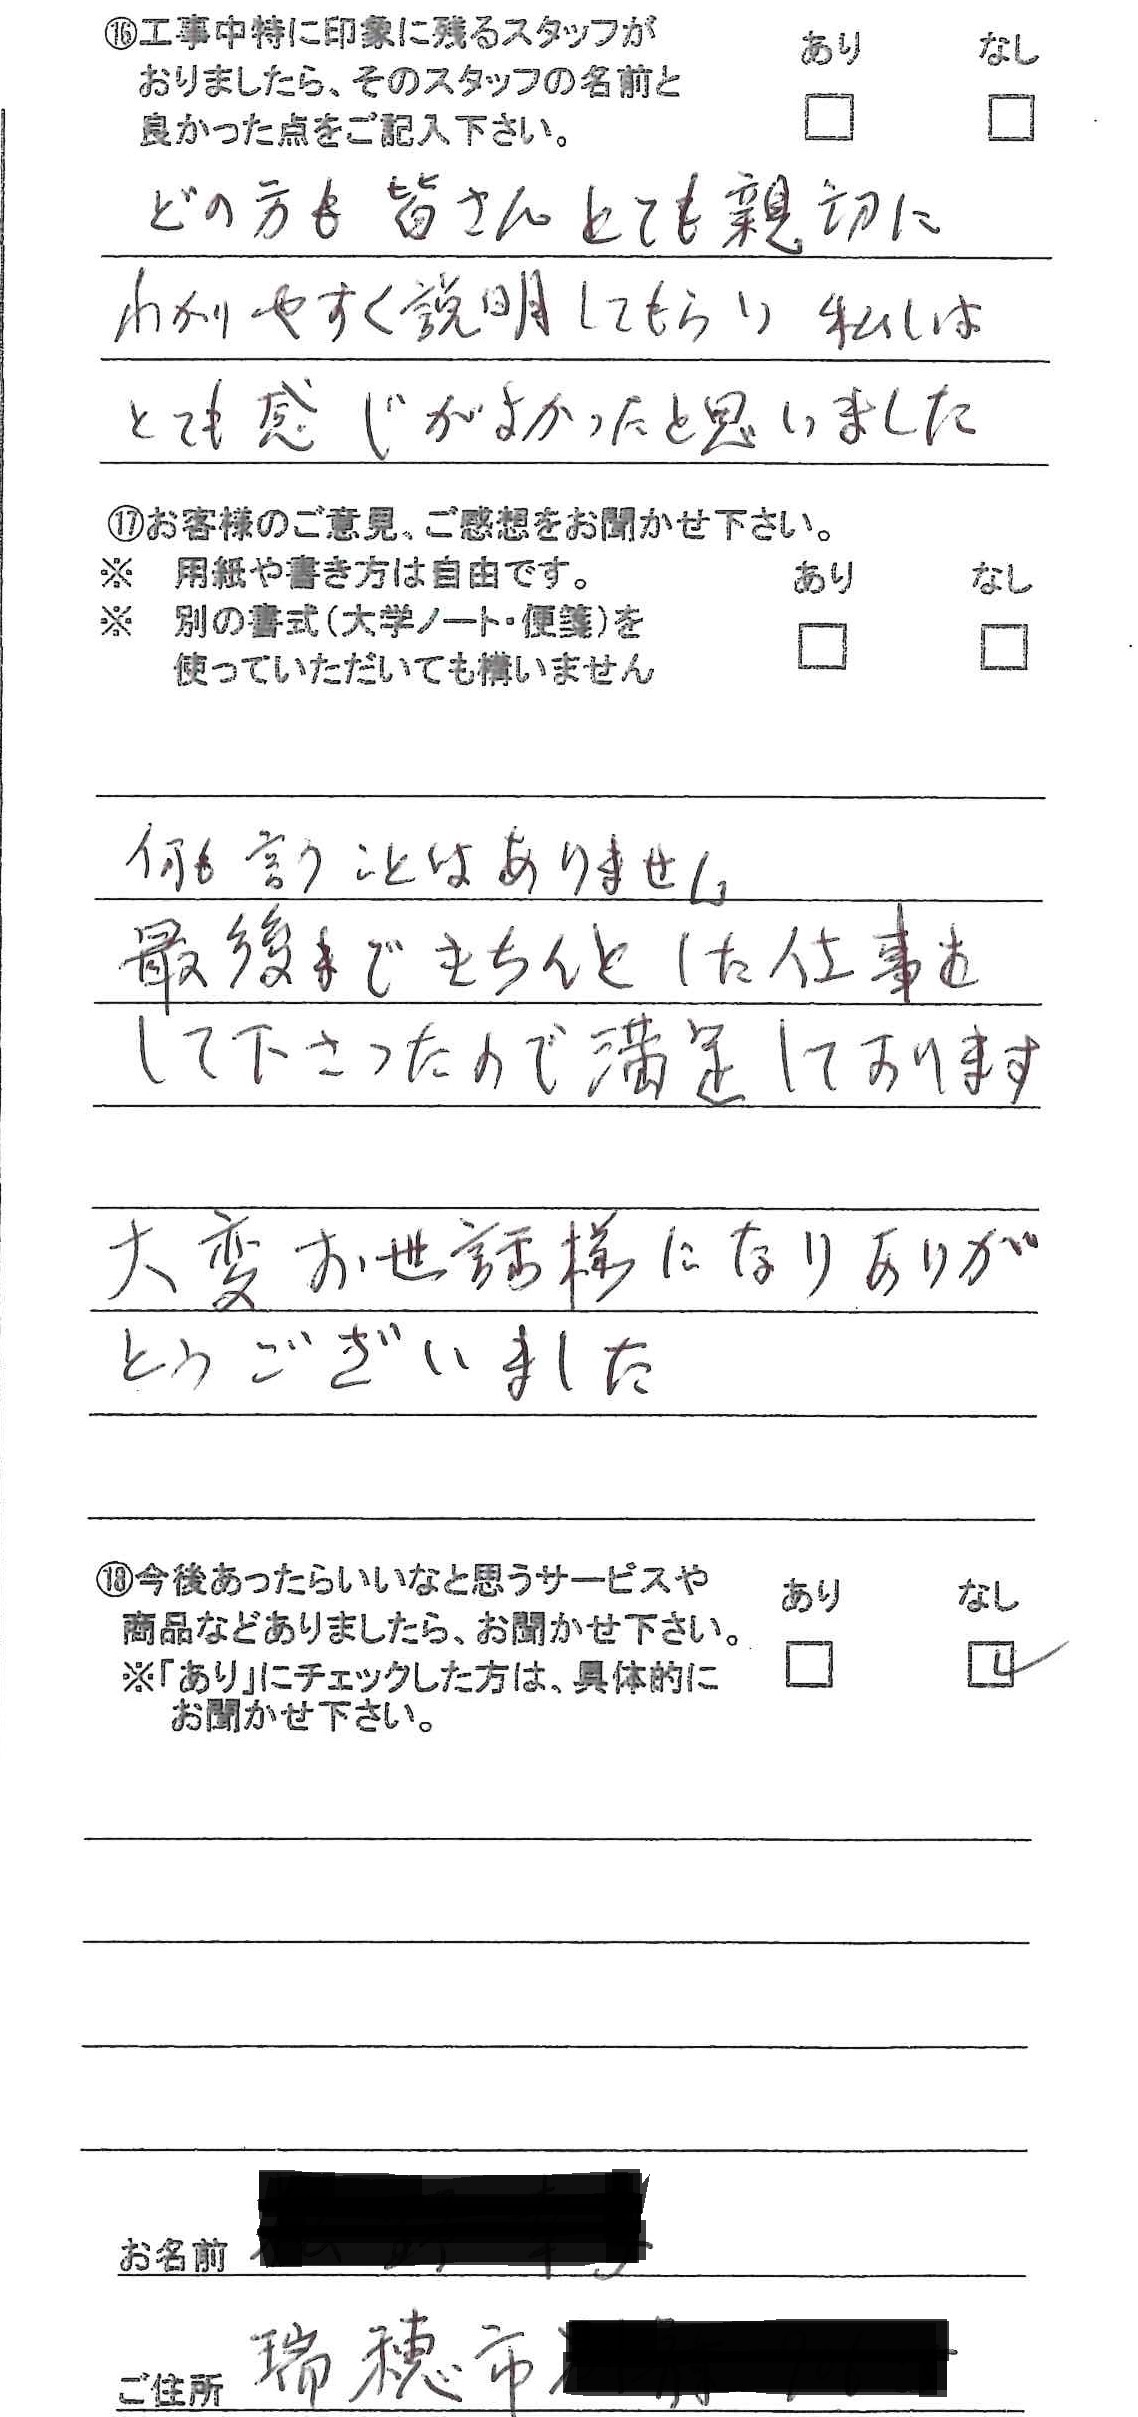 ⑯工事中特に印象に残るスタッフが
おりましたら、そのスタッフの名前と
良かった点をご記入下さい。
あり なし
どの方も 皆さん とても親切に
わかりやすく説明してもらい 私しは
とても感じがよかったと思いました
⑰お客様のご意見、ご感想をお聞かせ下さい。
※ 用紙や書き方は自由です。
あり なし
※ 別の書式(大学ノート・便箋)を
使っていただいても構いません
何も言うことはありません
最後まできちんとした仕事を
して下さったので満足しております
大変お世話様になりありが
とうございました
⑱今後あったらいいなと思うサービスや
あり なし
商品などありましたら、お聞かせ下さい。
※「あり」にチェックした方は、具体的に
お聞かせ下さい。
お名前
ご住所 瑞穂市